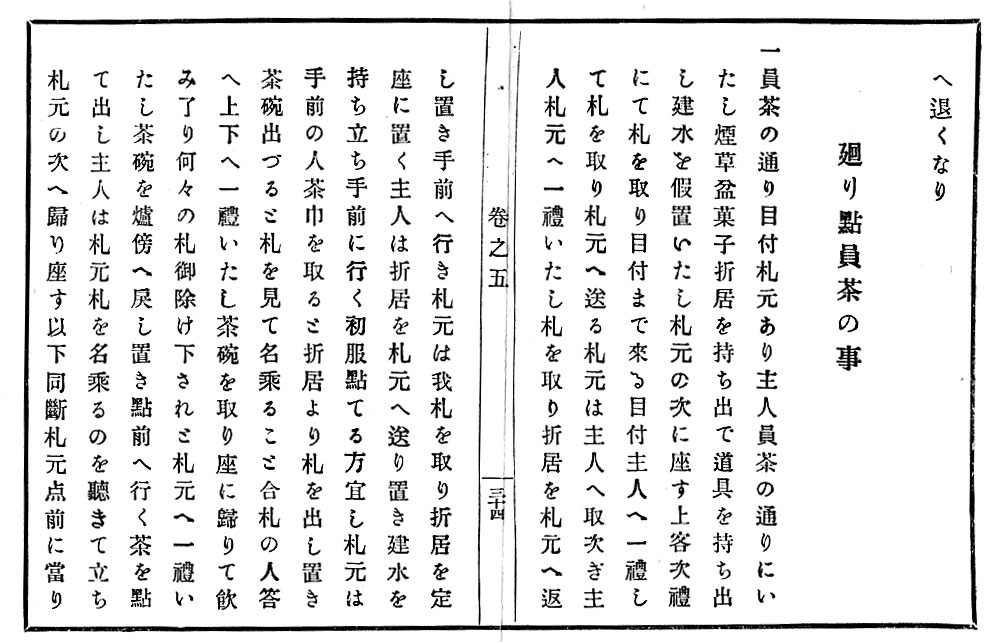 へ退くなり
廻り點員茶の事
一員茶の通り目付札元あり主人員茶の通りにい
たし煙草盆菓子折居を持ち出で道具を持ち出
し建水を假置いたし札元の次に座す上客次禮
にて札を取り目付まで來る目付主人へ一禮し
て札を取り札元へ送る札元は主人へ取次ぎ主
人札元へ一禮いたし札を取り折居を札元へ返
卷之五
三十四
し置き手前へ行き札元は我札を取り折居を定
座に置く主人は折居を札元へ送り置き建水を
持ち立ち手前に行く初服點てる方宜し札元は
手前の人茶巾を取ると折居より札を出し置き
茶碗出づると札を見て名乘ること合札の人答
へ上下へ一禮いたし茶碗を取り座に歸りて飮
み了り何々の札御除け下されと札元へ一禮い
たし茶碗を爐傍へ戾し置き點前へ行く茶を點
て出し主人は札元札を名乘るのを聽きて立ち
札元の次へ歸り座す以下同斷札元点前に當り